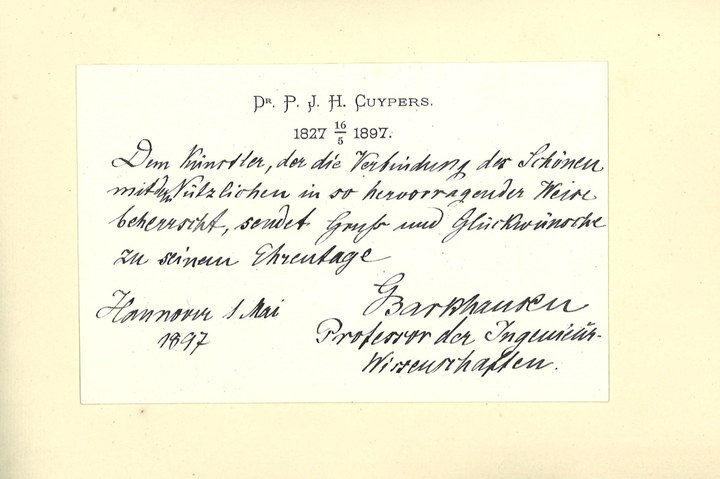 Dr. P. J. H. Cuypers.
1827 16/5 1897.
Dem Künstler, der die Verbindung des Schönen
mit dem Nützlichen in so hervorragender Weise
beherrscht, sendet Gruß und Glückwünsche
zu seinem Ehrentage
Hannover 1 Mai
1897
GBarkhausen
Professor der Ingenieur-
Wissenschaften.